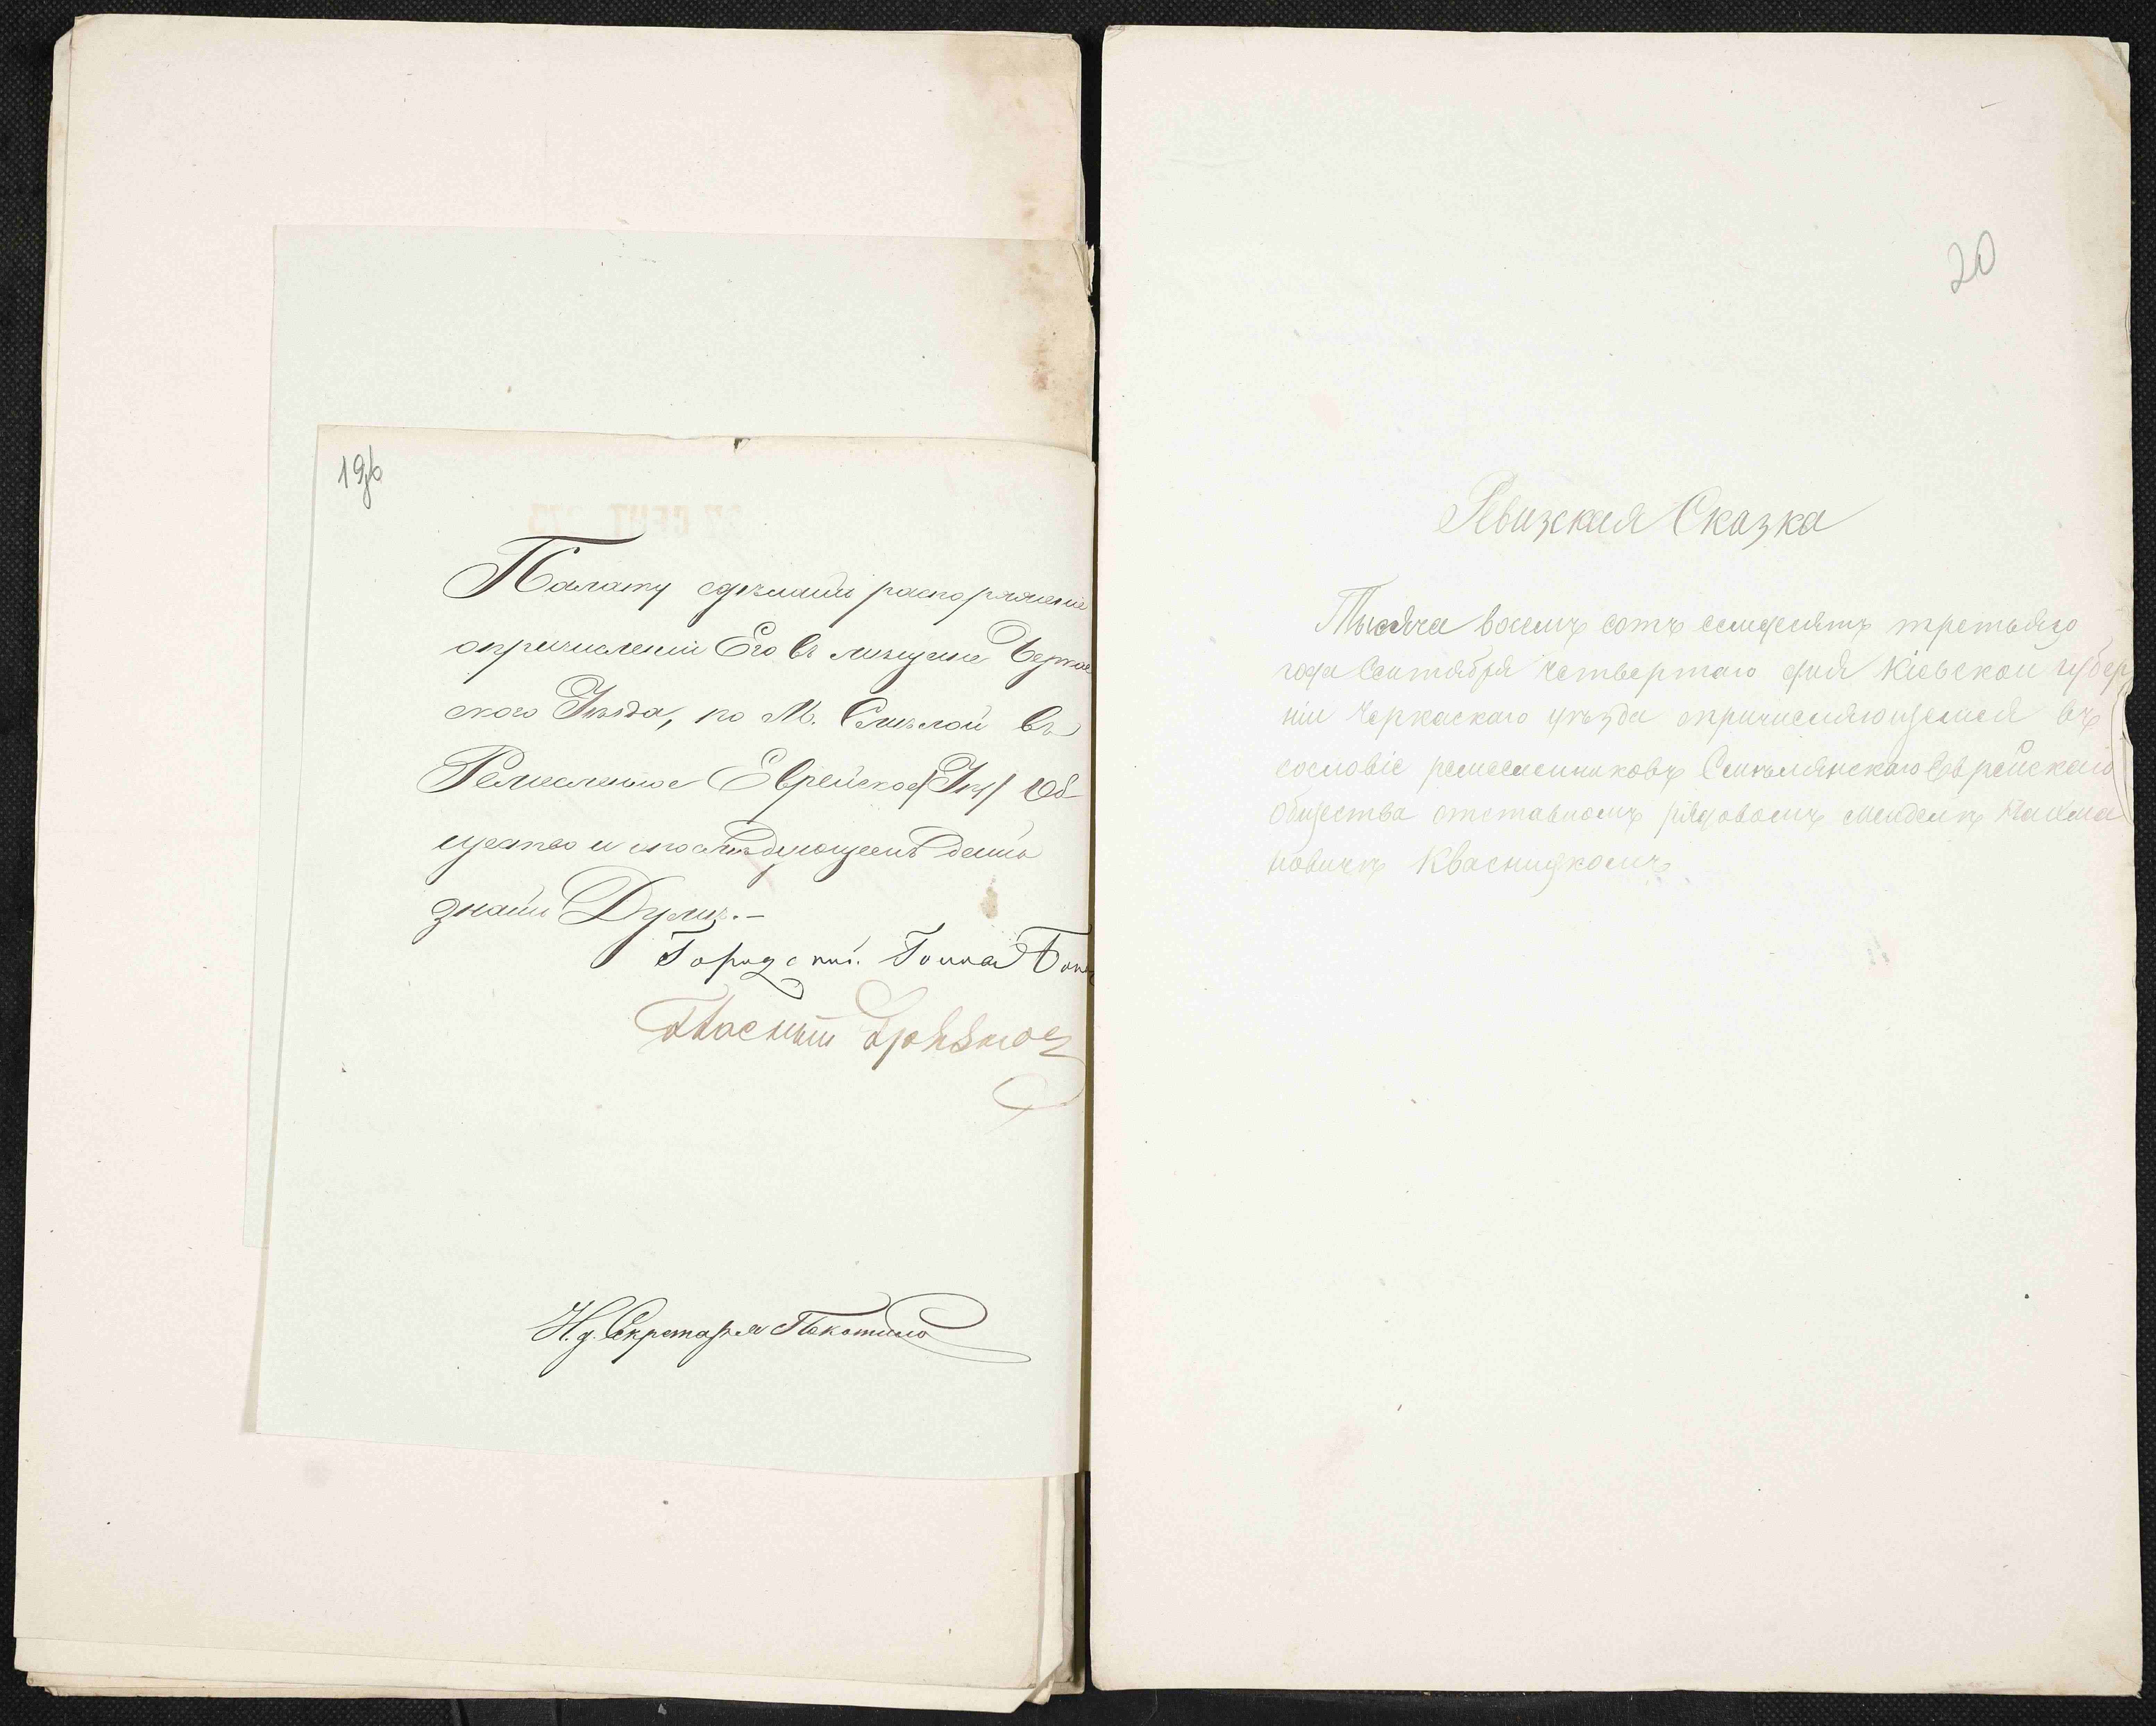 19об
Палату сдѣлать распоряженіе
опричисленіи Его въ мещане Черкас
скаго Уѣзда, по М. Смѣлой въ
Ремесленное Еврейское Об
щество и послѣдующемъ дать
знать Думѣ.-
Городской Голова
Гласный
И. д. Секретаря Пекотило
20
Ревизская Сказка
Тысяча восемь сотъ семдесятъ третьяго
года Сентября четвертаго дня Кіевской губер
ніи Черкаскаго уѣзда опричисляющемся въ
сословіе ремесленниковъ Смѣлянскаго Еврейскаго
Общества отставномъ рядовомъ Менделѣ Нахма
новичѣ Квасницкомъ